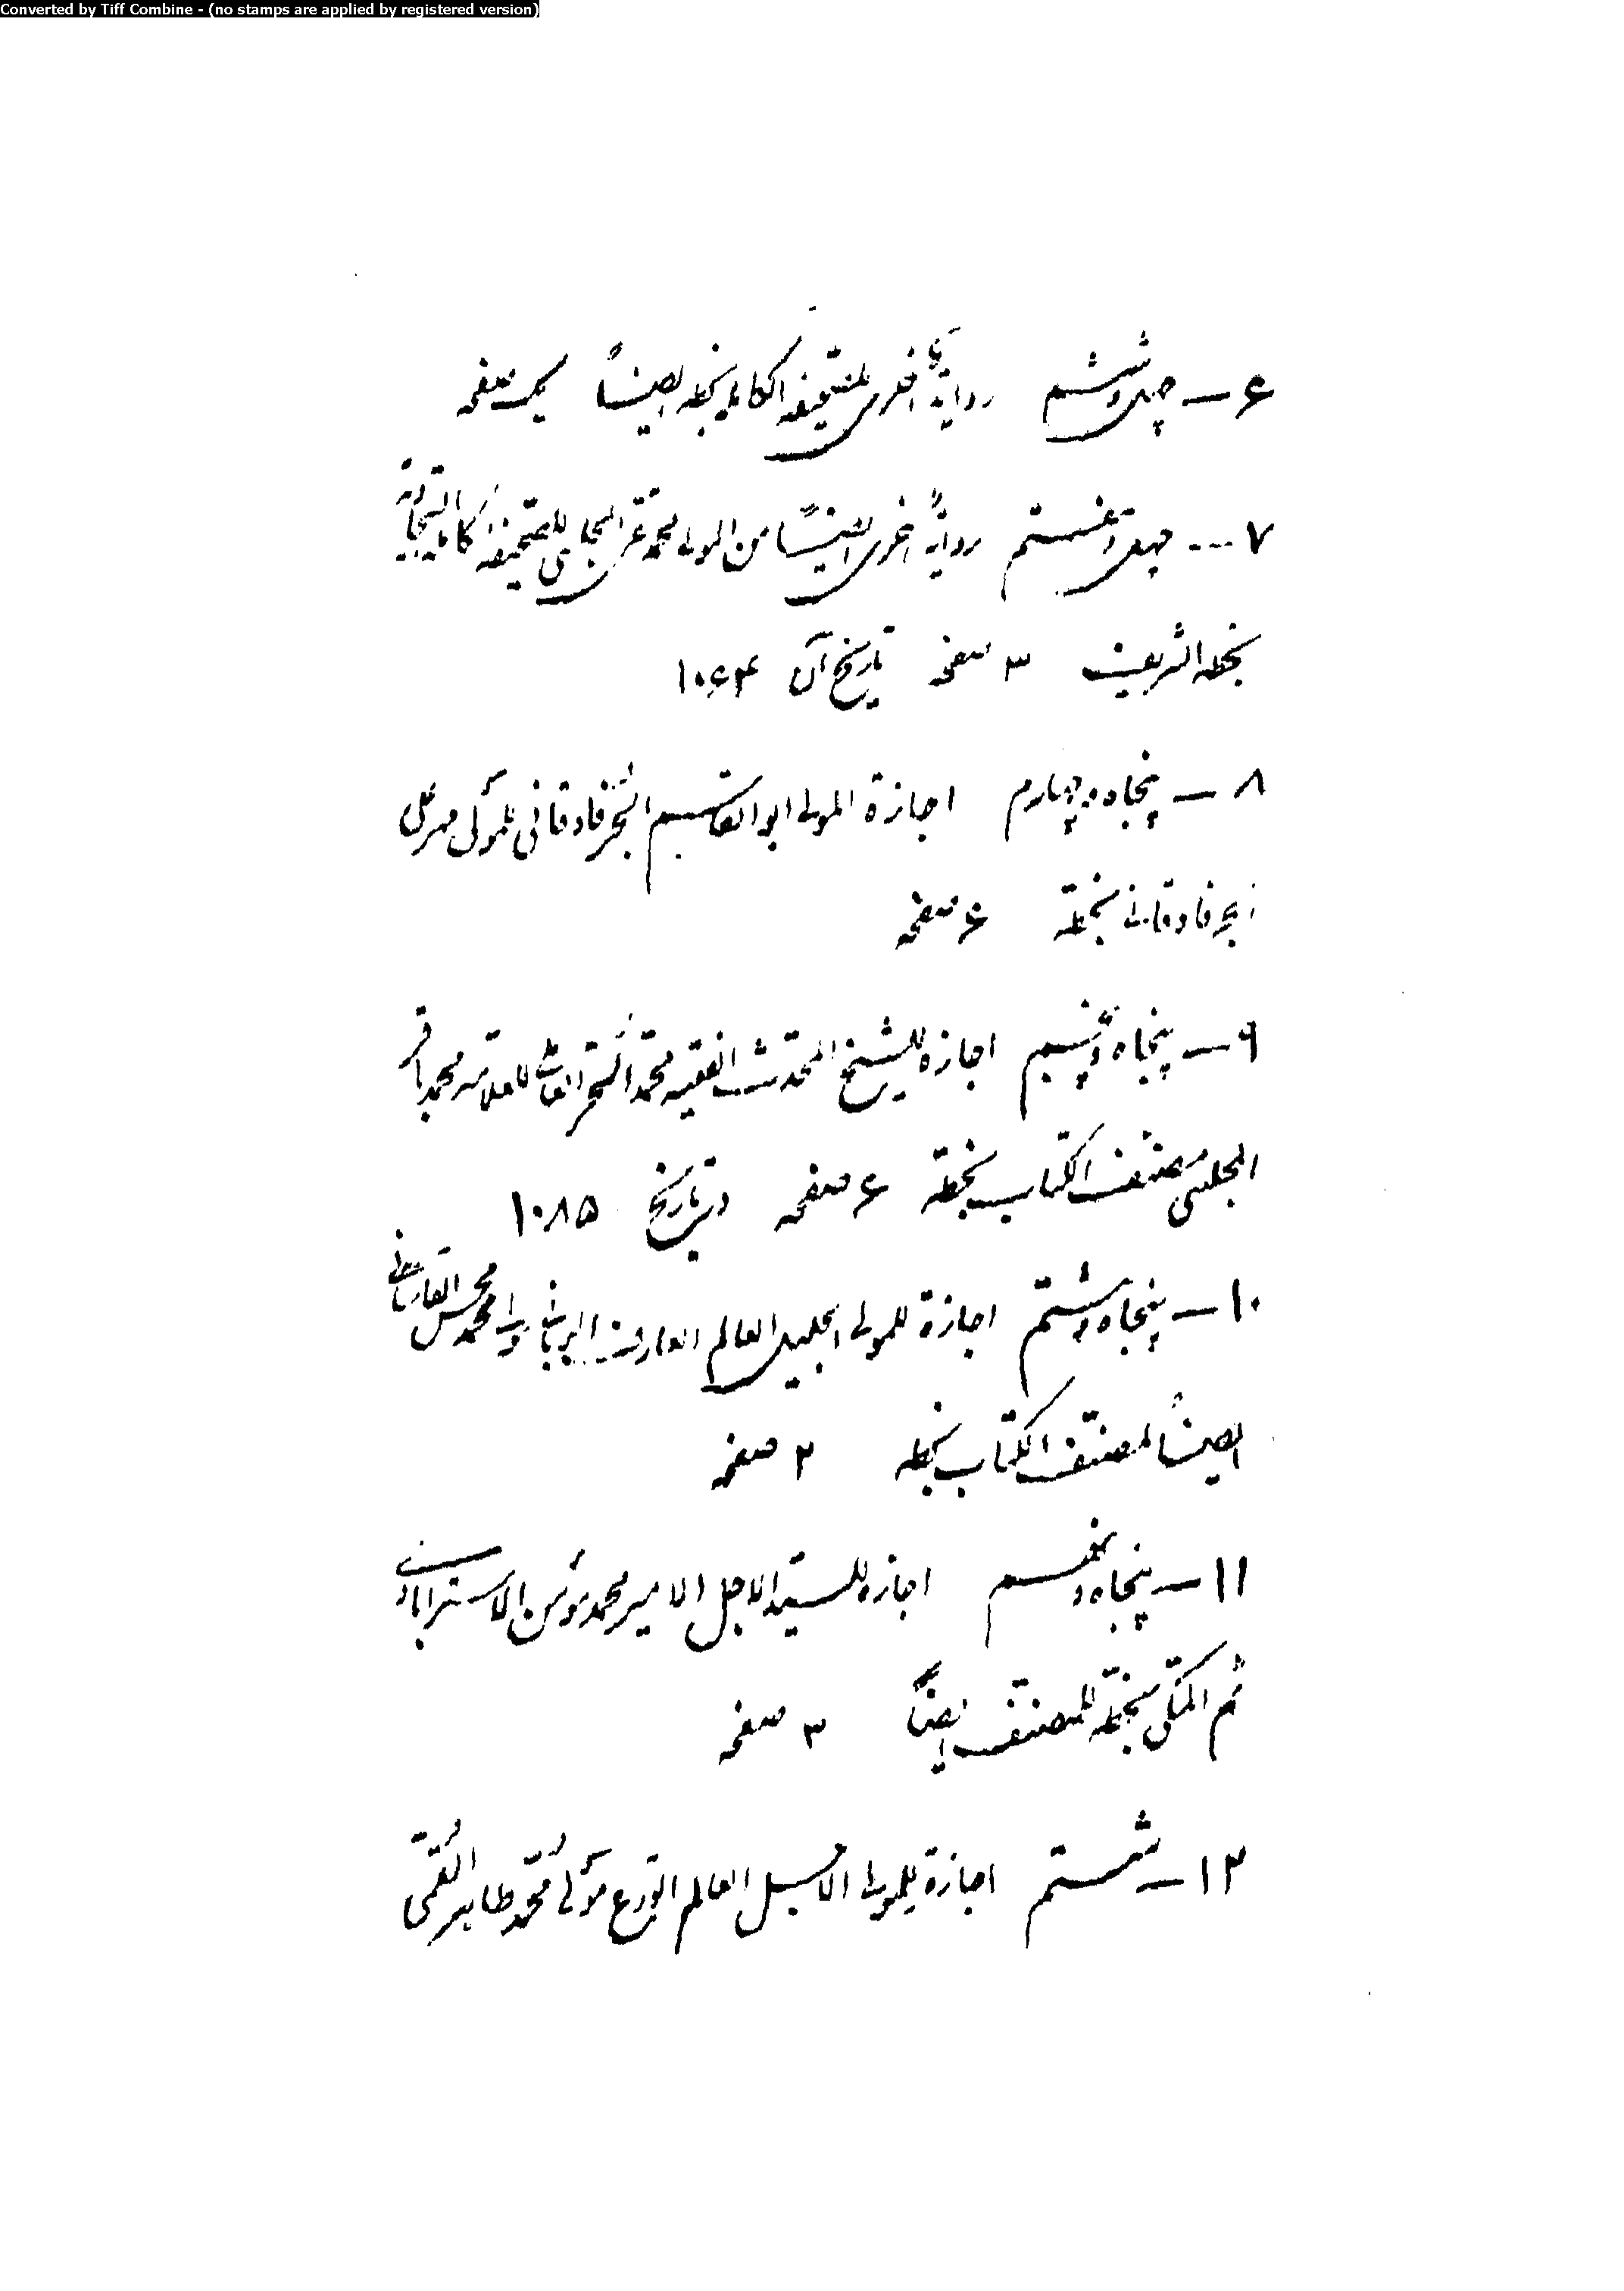 Converted by Tiff Combine - (no stamps are applied by registered version)
۶ — چهل و ششم روایةٌ اخری للصحیفه الکامله بخطه ایضاً یک صفحه
۷ — چهل و هفتم روایةٌ اخری ایضاً من المولی محمد تقی المجلسی للصحیفه الکاملة السجادیة
بخطه الشریف ۳ صفحه تاریخ آن ۱۰۶۴
۸ — پنجاه و چهارم اجازة المولی ابو القاسم الجُرفادقانی للمولی مهر علی
الجرفادقانی بخطّه ۶ صفحه
۹ — پنجاه و پنجم اجازه للشیخ المحدّث الفقیه محمّد الحرّ العاملی للعلامه محمد باقر
المجلسی مصنّف الکتاب بخطّه ۶ صفحه در تاریخ ۱۰۸۵
۱۰ — پنجاه و هشتم اجازة للمولی الجلیل العالم العارف الربانی مولی محمد محسن القاسانی
ایضاً لمصنّف الکتاب بخطه ۲ صفحه
۱۱ — پنجاه و نهم اجازه للسیّد الاجل الامیر محمد مؤمن الاسترابادی
ثم المکّی بخطّه للمصنّف ایضاً ۳ صفحه
۱۲ — شصتم اجازة للمولی الاجل العالم الورع مَولی مُحمّد طاهر القُمّی